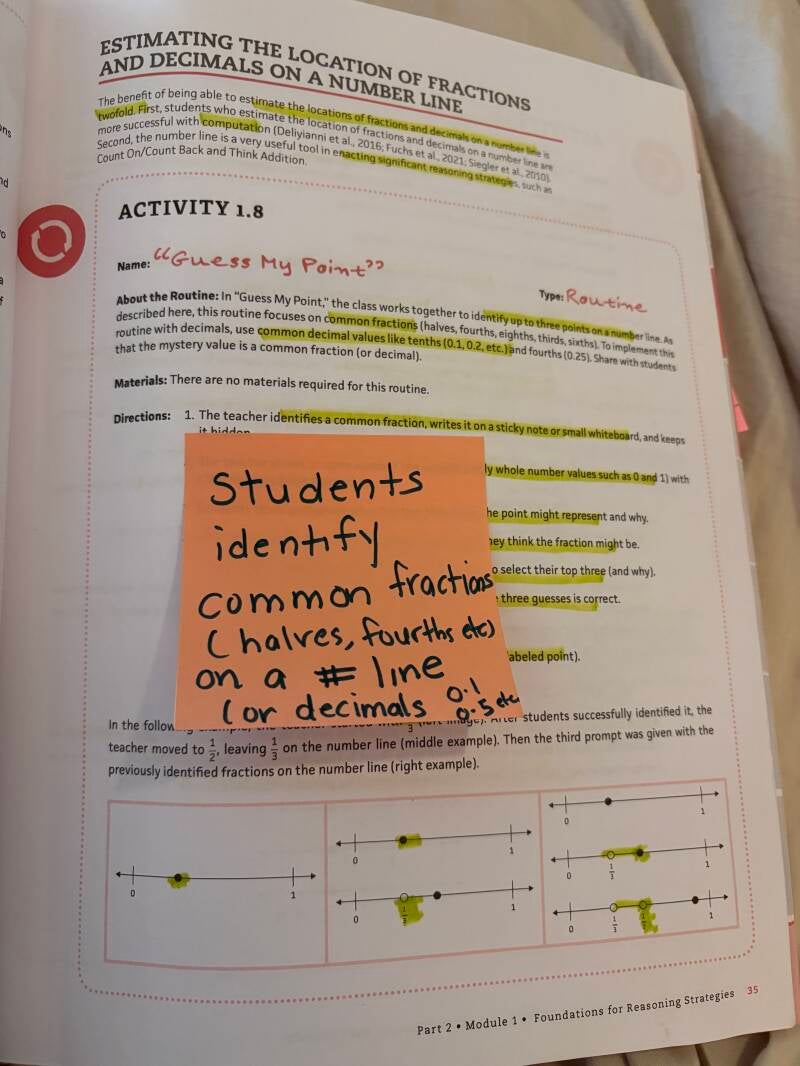 ESTIMATING THE LOCATION OF FRACTIONS
AND DECIMALS ON A NUMBER LINE
The benefit of being able to estimate the locations of fractions and decimals on a number line is
twofold. First, students who estimate the location of fractions and decimals on a number line are
more successful with computation (Deliyianni et al., 2016; Fuchs et al., 2021; Siegler et al., 2010).
Second, the number line is a very useful tool in enacting significant reasoning strategies, such as
Count On/Count Back and Think Addition.
ACTIVITY 1.8
Name: "Guess My Point"
Type: Routine
About the Routine: In "Guess My Point," the class works together to identify up to three points on a number line. As
described here, this routine focuses on common fractions (halves, fourths, eighths, thirds, sixths). To implement this
routine with decimals, use common decimal values like tenths (0.1, 0.2, etc.) and fourths (0.25). Share with students
that the mystery value is a common fraction (or decimal).
Materials: There are no materials required for this routine.
Directions: 1. The teacher identifies a common fraction, writes it on a sticky note or small whiteboard, and keeps
it hidden
ly whole number values such as 0 and 1) with
he point might represent and why.
hey think the fraction might be.
o select their top three (and why).
three guesses is correct.
abeled point).
Students
identify
common fractions
(halves, fourths etc)
on a # line
(or decimals 0.1
0.5 etc
In the follow
3 students successfully identified it, the
teacher moved to 1/2, leaving 1/3 on the number line (middle example). Then the third prompt was given with the
previously identified fractions on the number line (right example).
0 1
0 1
0 1/3 1
0 1
0 1/3 1
0 1/3 1/2 1
Part 2 • Module 1 • Foundations for Reasoning Strategies 35